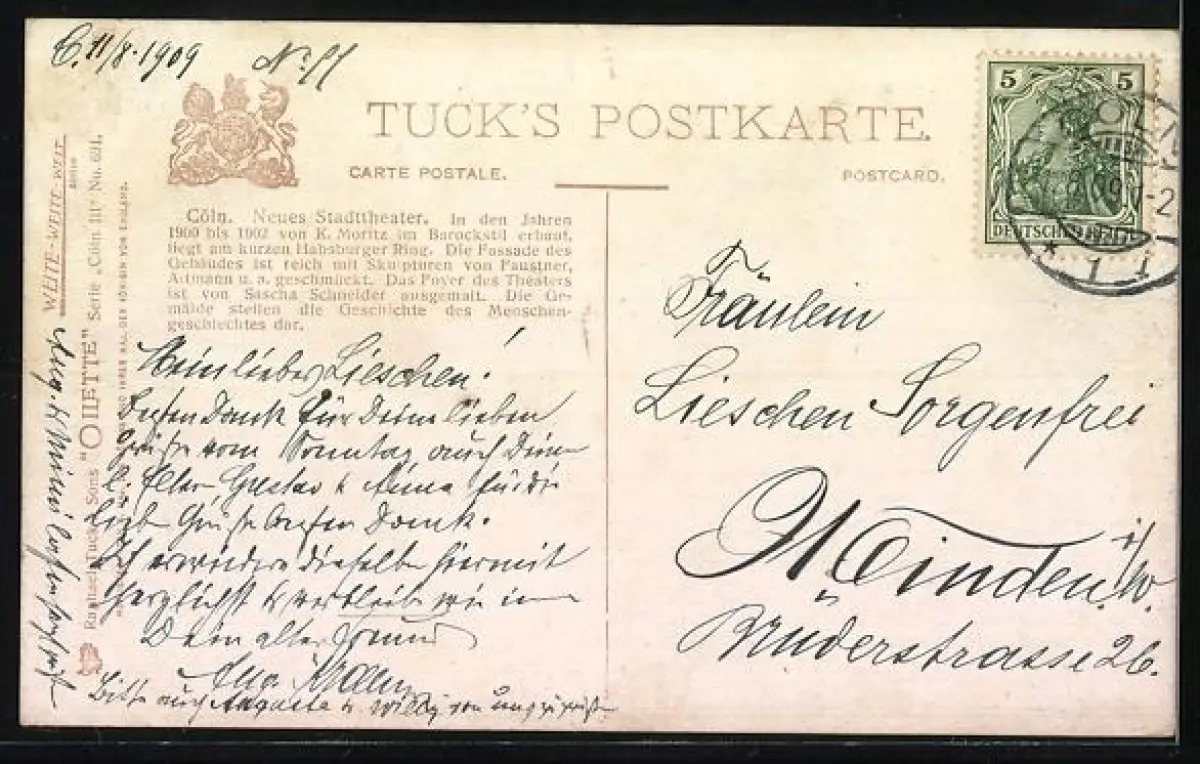 C. 11/8. 1909 No.
TUCK'S POSTKARTE.
CARTE POSTALE. POSTCARD.
5 5
DEUTSCHES REICH
Cöln. Neues Stadttheater. In den Jahren
1900 bis 1902 von K. Moritz am Barockstil erbaut,
liegt am kurzen Habsburger Ring. Die Fassade des
Gebäudes ist reich mit Skulpturen von Faustner,
Artmann u. a. geschmückt. Das Foyer des Theaters
ist von Sascha Schneider ausgemalt. Die Ge-
mälde stellen die Geschichte des Menschen-
geschlechtes dar.
Mein liebes Lieschen!
Besten Dank für Deine lieben
Grüße vom Sonntag auch Deinen
l. Eltern, Gustav & Anna für die
lieben Grüße besten Dank.
Ich erwidere dieselben hiermit
herzlichst & verbleibe wie immer
Dein alter Freund
Bitte auch Auguste & Willy von uns zu grüßen
Fräulein
Lieschen Sorgenfrei
Minden i/W.
Brüderstrasse 26.
WEITE-WEITE-WELT
Raphael Tuck & Sons "OILETTE" Serie "Cöln III" No. 691.